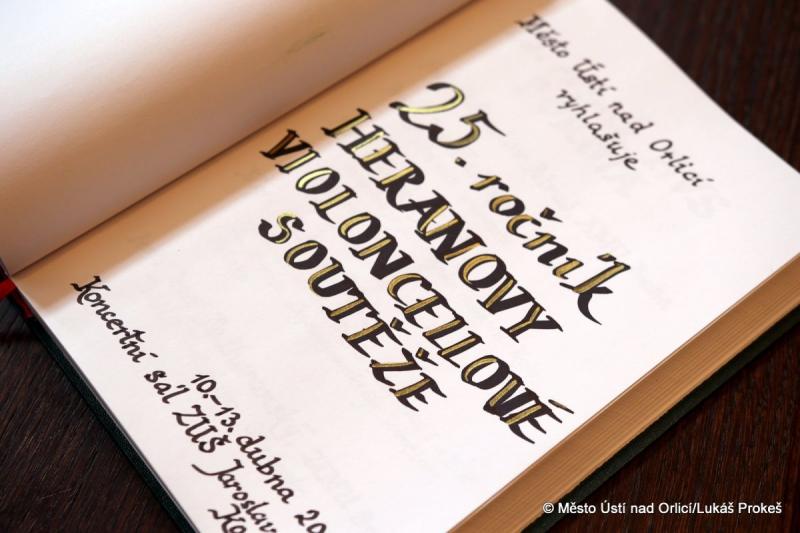 Město Ústí nad Orlicí
vyhlašuje
25. ročník
HERANOVY
VIOLONCELLOVÉ
SOUTĚŽE
10.-13. dubna 20
Koncertní sál ZUŠ Jaroslav
© Město Ústí nad Orlicí/Lukáš Prokeš